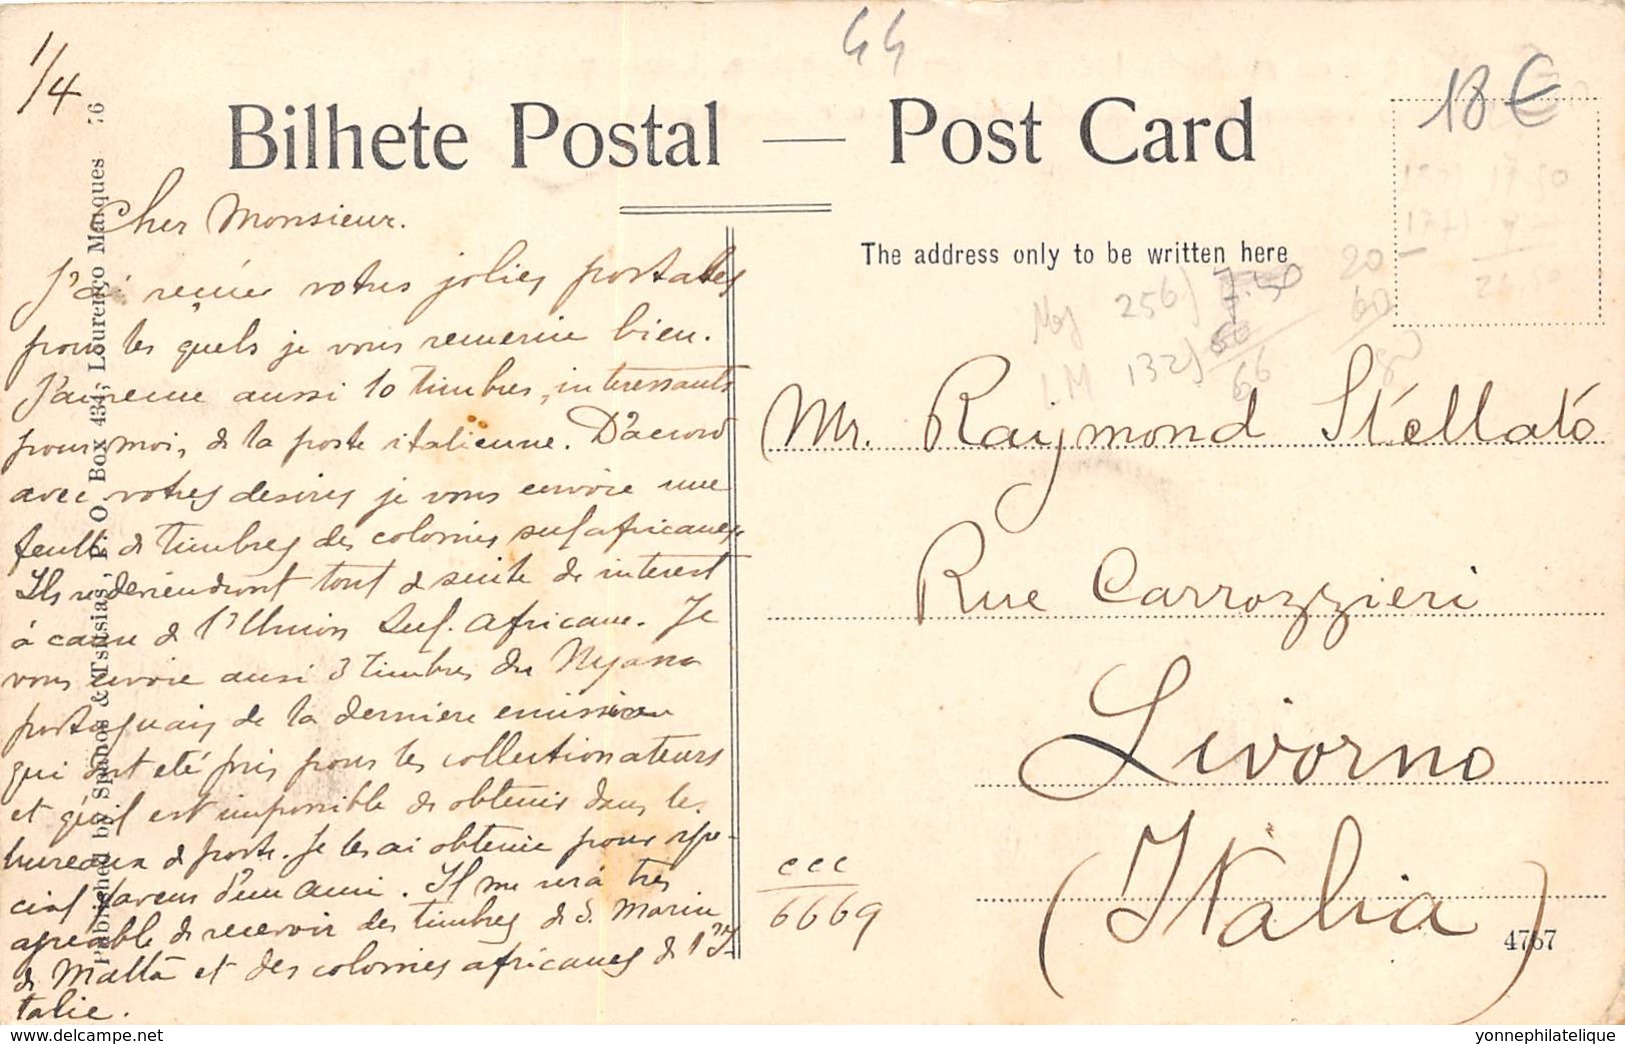 1/4
44
18 €
Bilhete Postal — Post Card
The address only to be written here
Published by Spanos & Tsitsias, P. O. Box 434, Lourenço Marques 76
Cher Monsieur.
J'ai reçue votres jolies portales
pour les quels je vous remerie bien.
J'ai reçue aussi 10 timbres, interessants
pour moi, de la poste italienne. D'acord
avec votres desires je vous envoie une
feulle de timbres des colonies sulafricanes.
Ils deviendront tout de suite de interest
à cause de l'Union Sul. Africane. Je
vous envoie aussi 3 timbres du Nyassa
portuguais de la derniere emission
qui ont eté pris pour les collectionateurs
et qu'il est impossible de obtenir dans les
bureaux de poste. Je les ai obtenie pour spe-
cial faveur d'um ami. Il me será très
agreable de recevoir des timbres de S. Marin
de Malta et des colonies africanes de l'I-
talie.
256) 7.50
132)
66
20
60
Mr. Raymond Stéllató
Rue Carrozzieri
Livorno
(Italia)
ccc
6669
4767
www.delcampe.net
yonnephilatelique